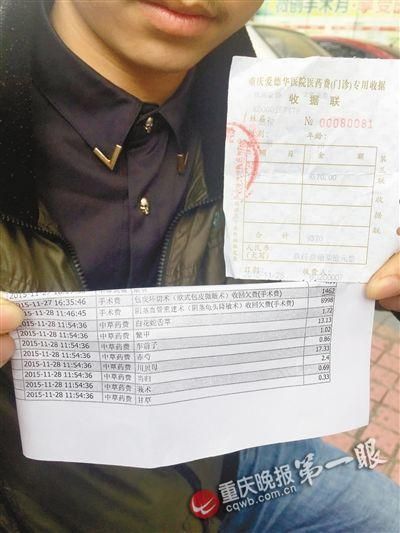 重庆爱德华医院医药费(门诊)专用收据
收据联
№ 00080081
姓名
年龄:
项目 金额
370.00
第三联 收据联
合计 ¥370
人民币
(大写)
日期 收费人
1462
2015-11-27 16:35:46 手术费 包皮环切术(欧式包皮微雕术)收回欠费(手术费) 8998
2015-11-28 11:46:45 手术费 阴茎血管重建术(阴茎龟头降敏术)收回欠费(手术费) 1.72
2015-11-28 11:54:36 中草药费 白花蛇舌草 13.13
2015-11-28 11:54:36 中草药费 鳖甲 1.02
2015-11-28 11:54:36 中草药费 车前子 0.86
2015-11-28 11:54:36 中草药费 赤芍 17.33
2015-11-28 11:54:36 中草药费 川贝母 2.4
2015-11-28 11:54:36 中草药费 当归 0.69
2015-11-28 11:54:36 中草药费 莪术 0.33
2015-11-28 11:54:36 中草药费 甘草
重庆晚报 第一眼
cqwb.com.cn